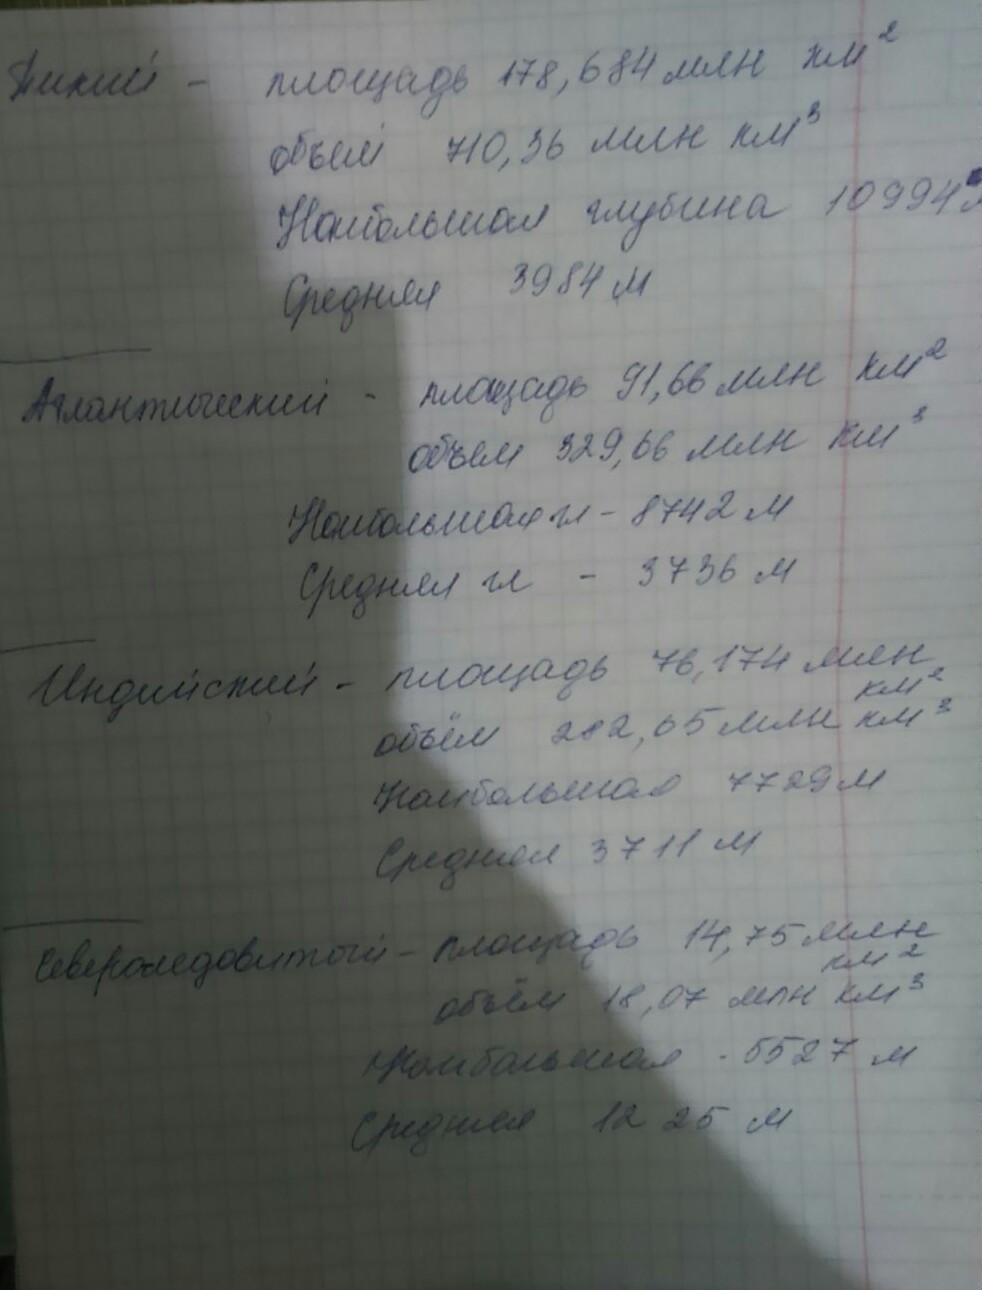 Тихий - площадь 178,684 млн км²
объем 710,36 млн км³
Наибольшая глубина 10994 м
Средняя 3984 м
Атлантический - площадь 91,66 млн км²
объем 329,66 млн км³
Наибольшая гл - 8742 м
Средняя гл - 3736 м
Индийский - площадь 76,174 млн
км²
объём 282,65 млн км³
Наибольшая 7729 м
Средняя 3711 м
Североледовитый - площадь 14,75 млн
км²
объём 18,07 млн км³
Наибольшая - 5527 м
Средняя 1225 м